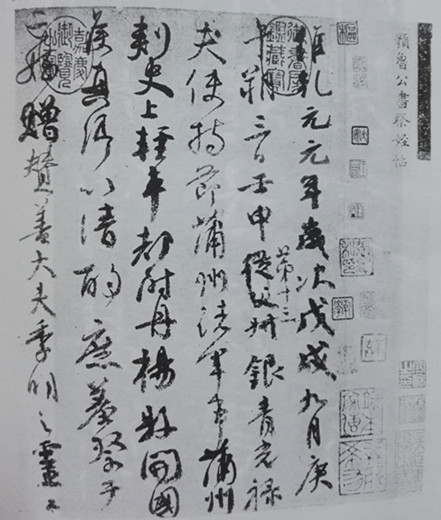 顏魯公書祭姪帖
維乾元元年歲次戊戌九月庚
午朔三日壬申第十三從父叔銀青光祿
夫使持節蒲州諸軍事蒲州
刺史上輕車都尉丹楊縣開國
侯真卿以清酌庶羞祭于
亡姪贈贊善大夫季明之靈曰
御書房鑑藏寶
嘉慶御覽之寶